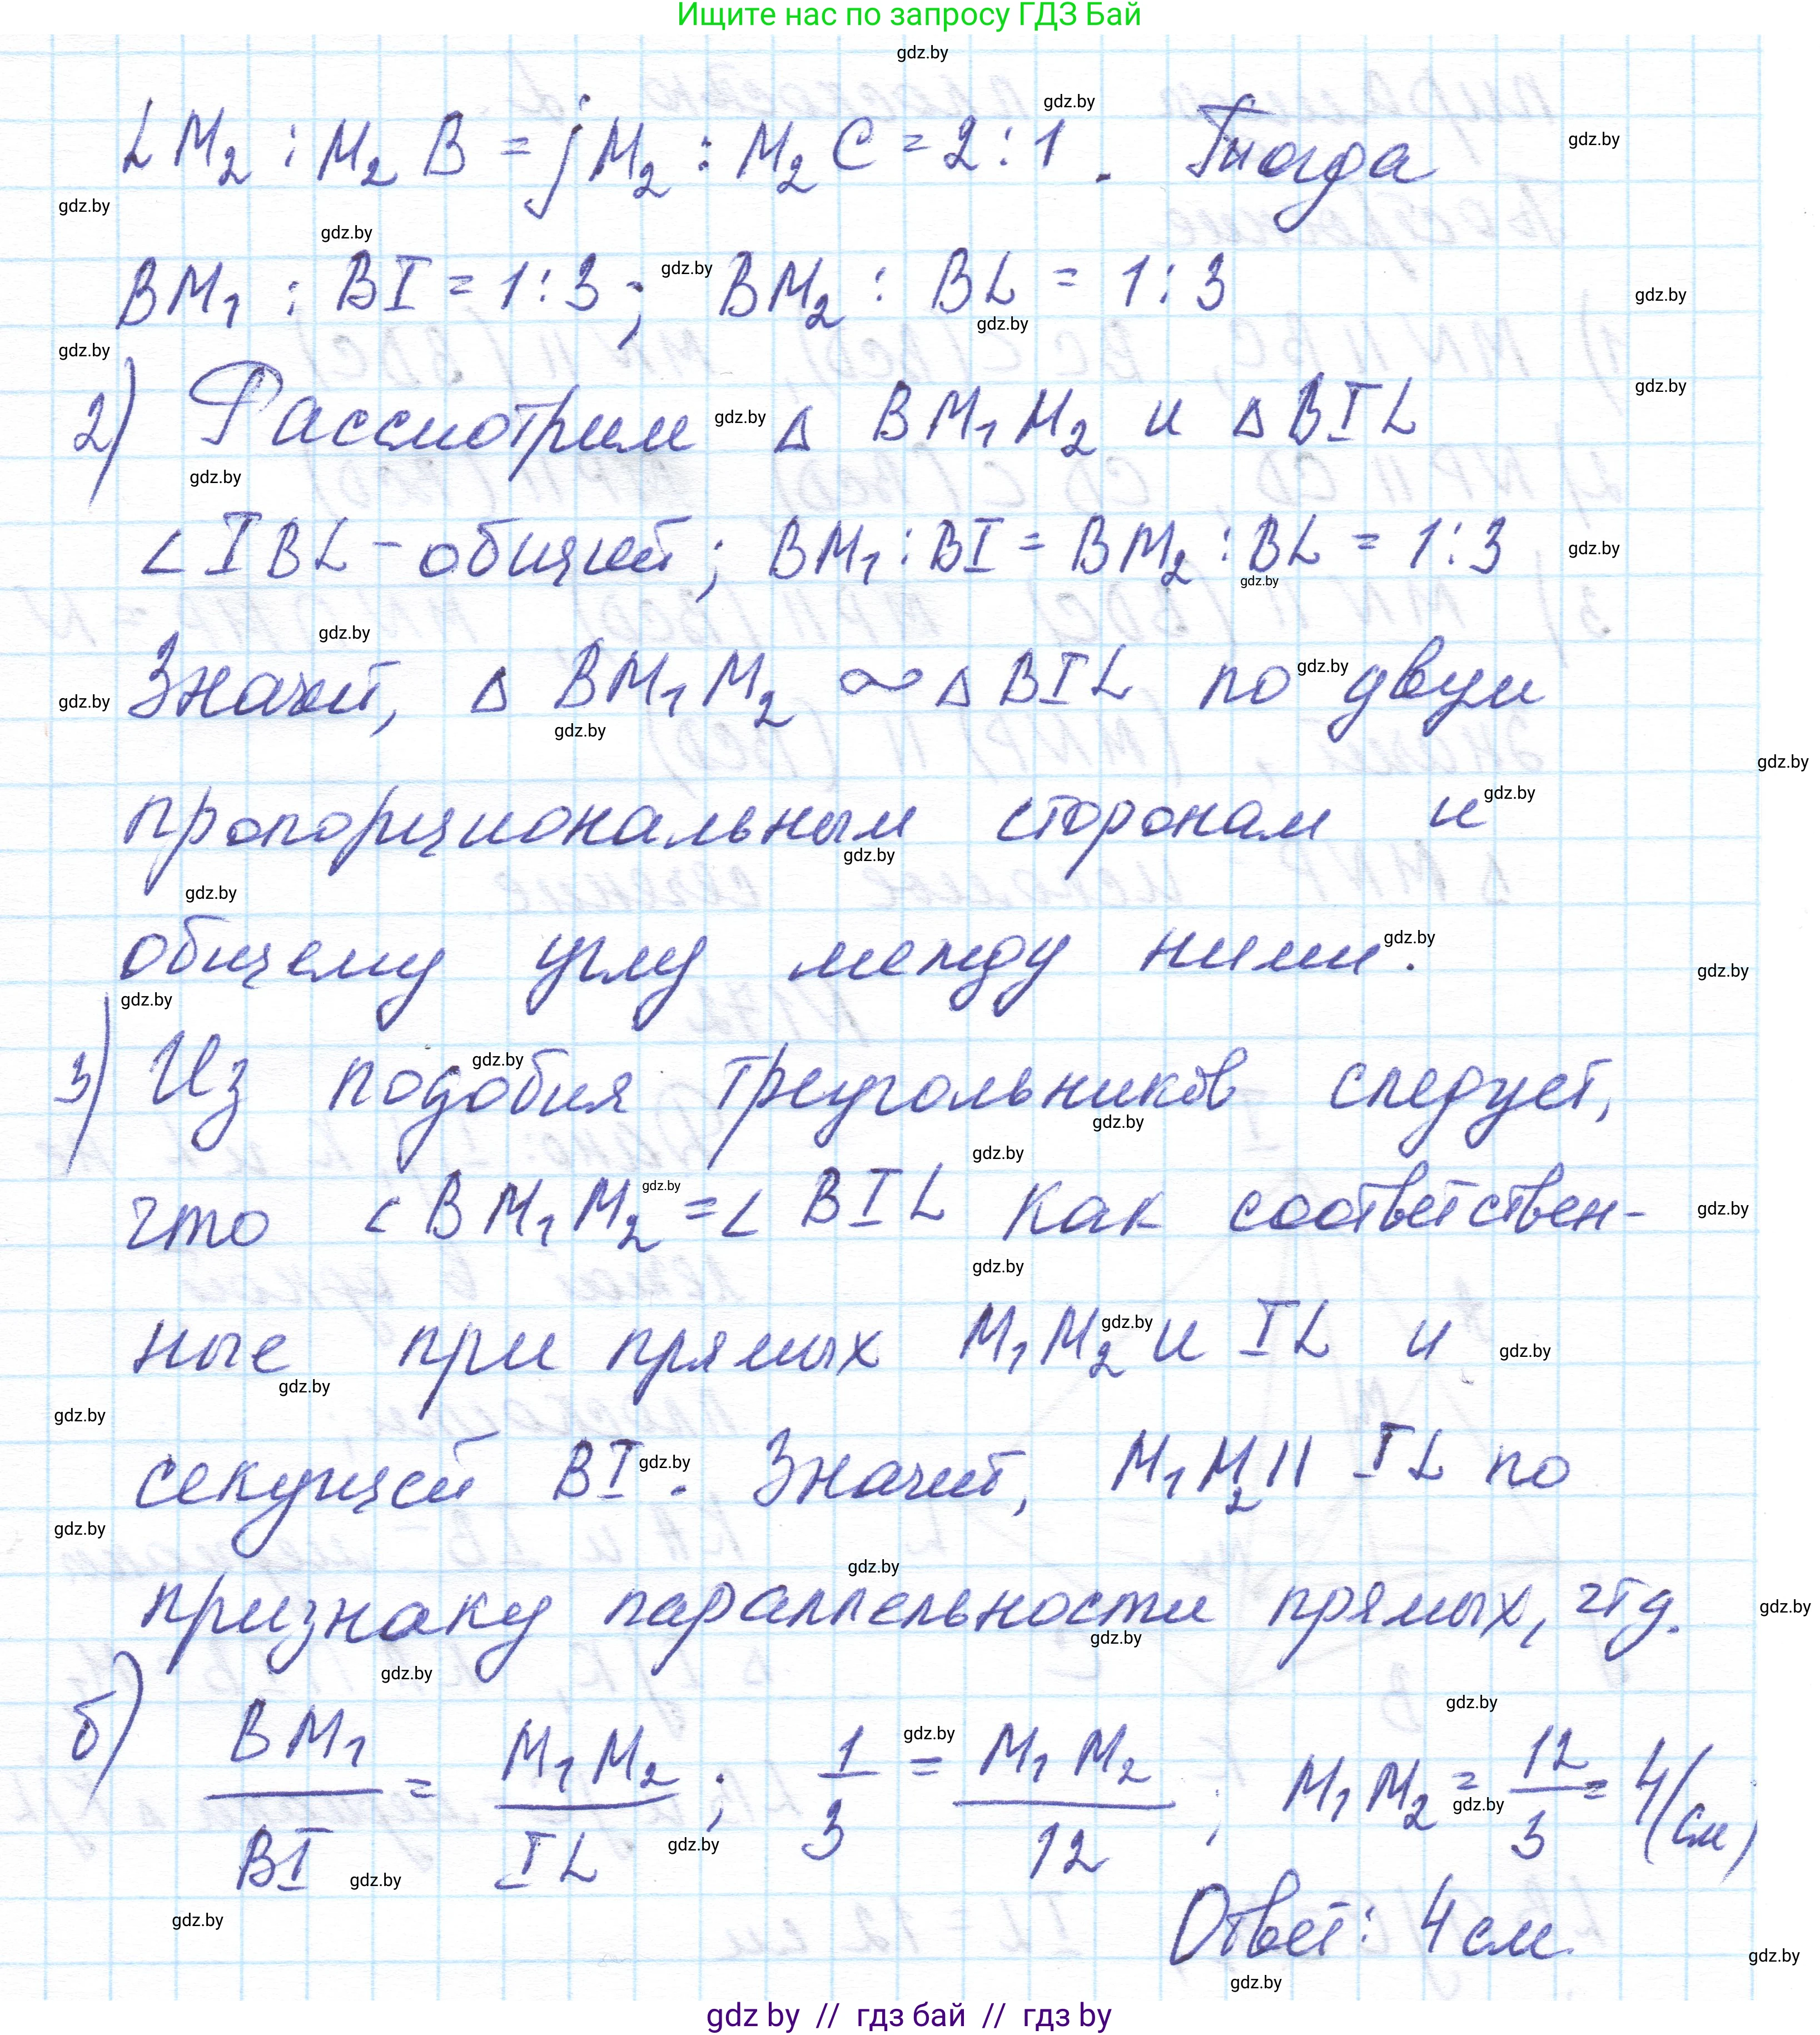 Ищите нас по запросу ГДЗ Бай
gdz.by
LM₂ : M₂B = jM₂ : M₂C = 2:1. Тогда
BM₁ : BI = 1:3; BM₂ : BL = 1:3
2) Рассмотрим Δ BM₁M₂ и Δ BIL
∠IBL - общий; BM₁:BI = BM₂:BL = 1:3
Значит, Δ BM₁M₂ ∾ Δ BIL по двум
пропорциональным сторонам и
общему углу между ними.
3) Из подобия треугольников следует,
что ∠BM₁M₂ = ∠BIL как соответствен-
ные при прямых M₁M₂ и IL и
секущей BI. Значит, M₁M₂ || IL по
признаку параллельности прямых, чтд.
б) BM₁/BI = M₁M₂/IL; 1/3 = M₁M₂/12; M₁M₂ = 12/3 = 4(см)
Ответ: 4 см.
gdz by // гдз бай // гдз by